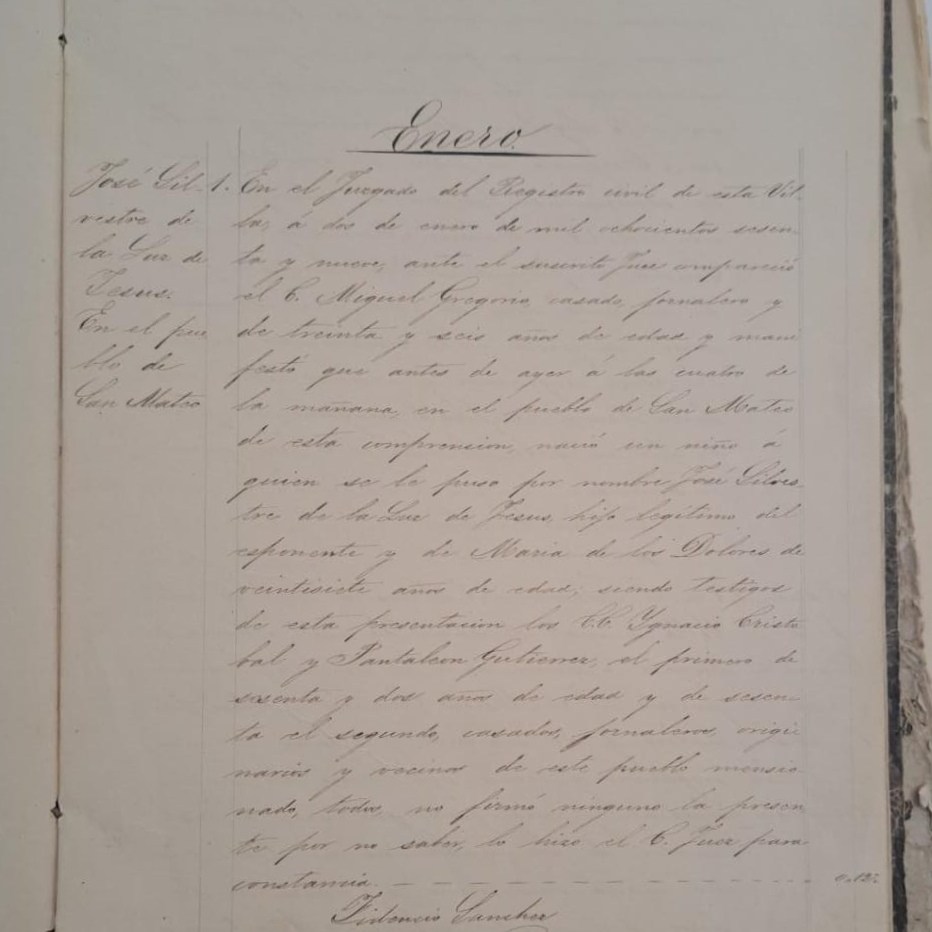 Enero.
José Sil-
vestre de
la Luz de
Jesus.
En el pue
blo de
San Mateo
1. En el Juzgado del Registro civil de esta Vil-
la, á dos de enero de mil ochocientos sesen-
ta y nueve, ante el suscrito Juez compareció
el C. Miguel Gregorio, casado, jornalero y
de treinta y seis años de edad y mani
festó que antes de ayer á las cuatro de
la mañana, en el pueblo de San Mateo
de esta comprension, nació un niño á
quien se le puso por nombre José Silves
tre de la Luz de Jesus, hijo legítimo del
esponente y de Maria de los Dolores de
veintisiete años de edad; siendo testigos
de esta presentacion los CC. Ygnacio Cristo
bal y Pantaleon Gutierrez, el primero de
sesenta y dos años de edad y de sesen-
ta el segundo, casados, jornaleros, origi
narios y vecinos de este pueblo mensio
nado, todos, no firmó ninguno la presen
te por no saber, lo hizo el C. Juez para
constancia.
Fidencio Sanchez